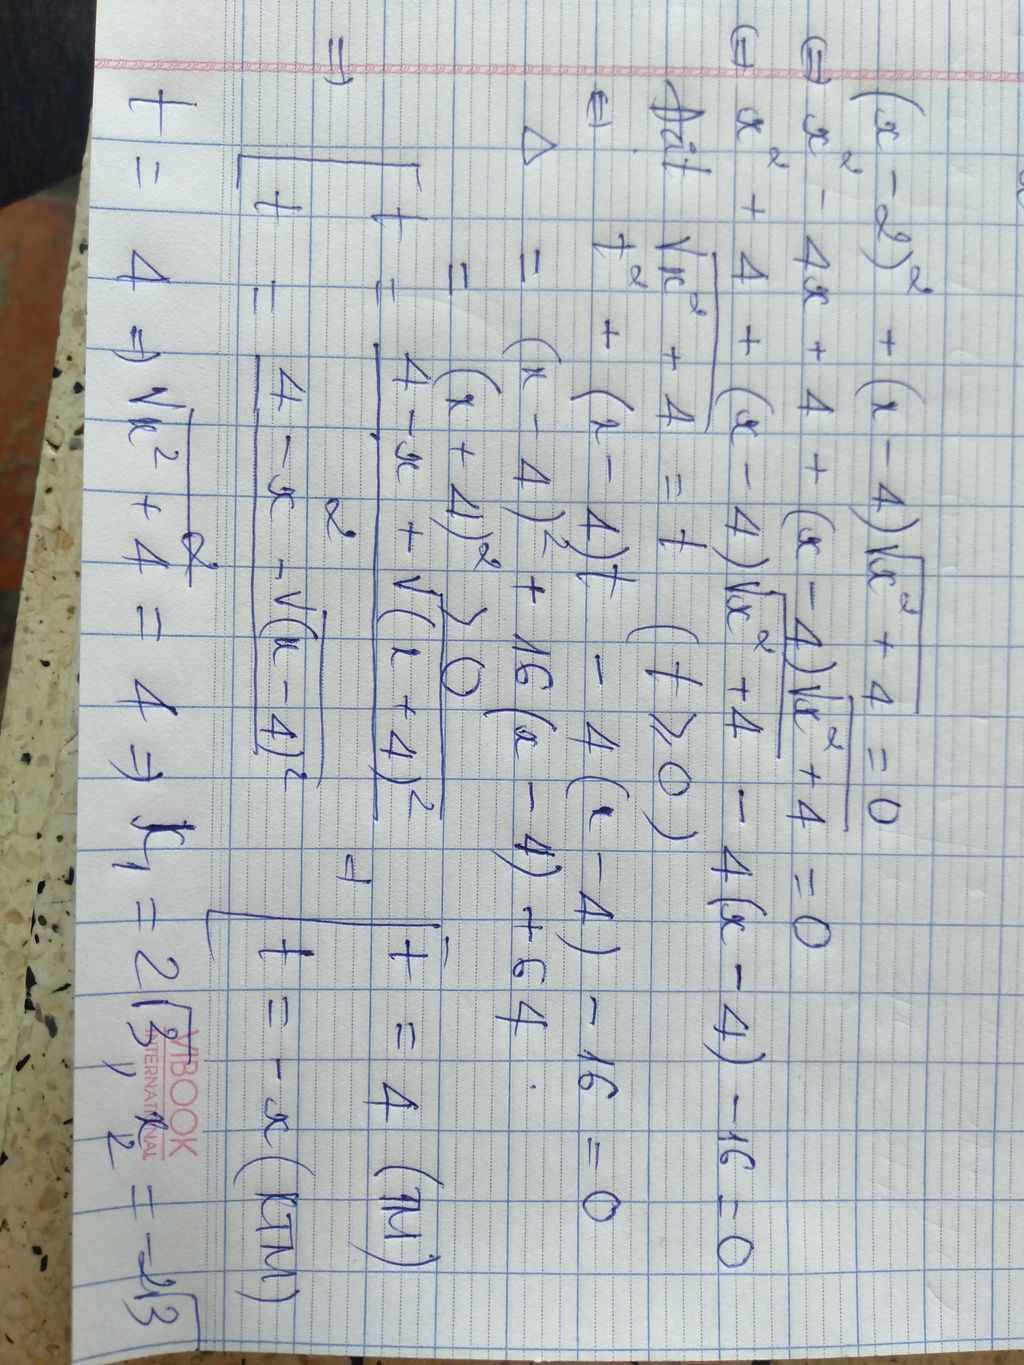 (x - 2)² + (x - 4)√(x² + 4) = 0
⇔ x² - 4x + 4 + (x - 4)√(x² + 4) = 0
⇔ x² + 4 + (x - 4)√(x² + 4) - 4(x - 4) - 16 = 0
Đặt √(x² + 4) = t (t ⩾ 0)
⇔ t² + (x - 4)t - 4(x - 4) - 16 = 0
Δ = (x - 4)² + 16(x - 4) + 64
= (x + 4)² ⩾ 0
⇒ [ t = (4 - x + √(x + 4)²) / 2 ⇒ [ t = 4 (TM)
t = (4 - x - √(x - 4)²) / 2 t = -x (KTM)
t = 4 ⇒ √(x² + 4) = 4 ⇒ x₁ = 2√3, x₂ = -2√3
VIBOOK
INTERNATIONAL